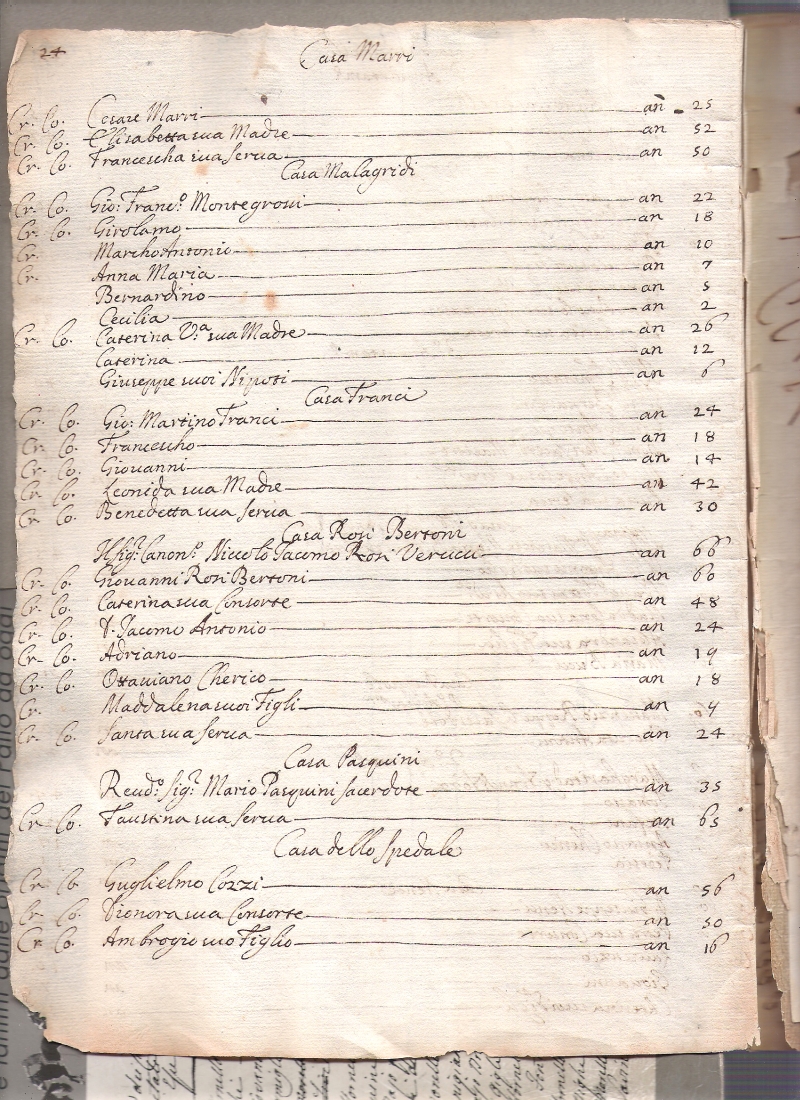 24
Casa Marri
Cr. Co. Cesare Marri an 25
Cr. Co. Elisabetta sua Madre an 52
Cr. Co. Francescha sua serua an 50
Casa Malagridi
Cr. Co. Gio: Franc.º Montegrossi an 22
Cr. Co. Girolamo an 18
Cr. MarchoAntonio an 10
Cr. Anna Maria an 7
Bernardino an 5
Cecilia an 2
Cr. Co. Caterina V.ª sua Madre an 26
Caterina an 12
Giuseppe suoi Nipoti an 6
Casa Franci
Cr. Co. Gio: Martino Franci an 24
Cr. Co. Francescho an 18
Cr. Co. Giovanni an 14
Cr. Co. Leonida sua Madre an 42
Cr. Co. Benedetta sua serua an 30
Casa Rosi Bertoni
Il sig.r Canon.º Niccolò Jacomo Rosi Verucci an 66
Cr. Co. Giovanni Rosi Bertoni an 60
Cr. Co. Caterina sua Consorte an 48
Cr. Co. Jacomo Antonio an 24
Cr. Co. Adriano an 19
Cr. Co. Ottauiano Cherico an 18
Cr. Maddalena suoi Figli an 9
Cr. Co. Santa sua serua an 24
Casa Pasquini
Reud.º sig.r Mario Pasquini sacerdote an 35
Cr. Co. Faustina sua serua an 65
Casa dello spedale
Cr. Co. Guglielmo Cozzi an 56
Cr. Co. Dionora sua Consorte an 50
Cr. Co. Ambrogio suo Figlio an 16